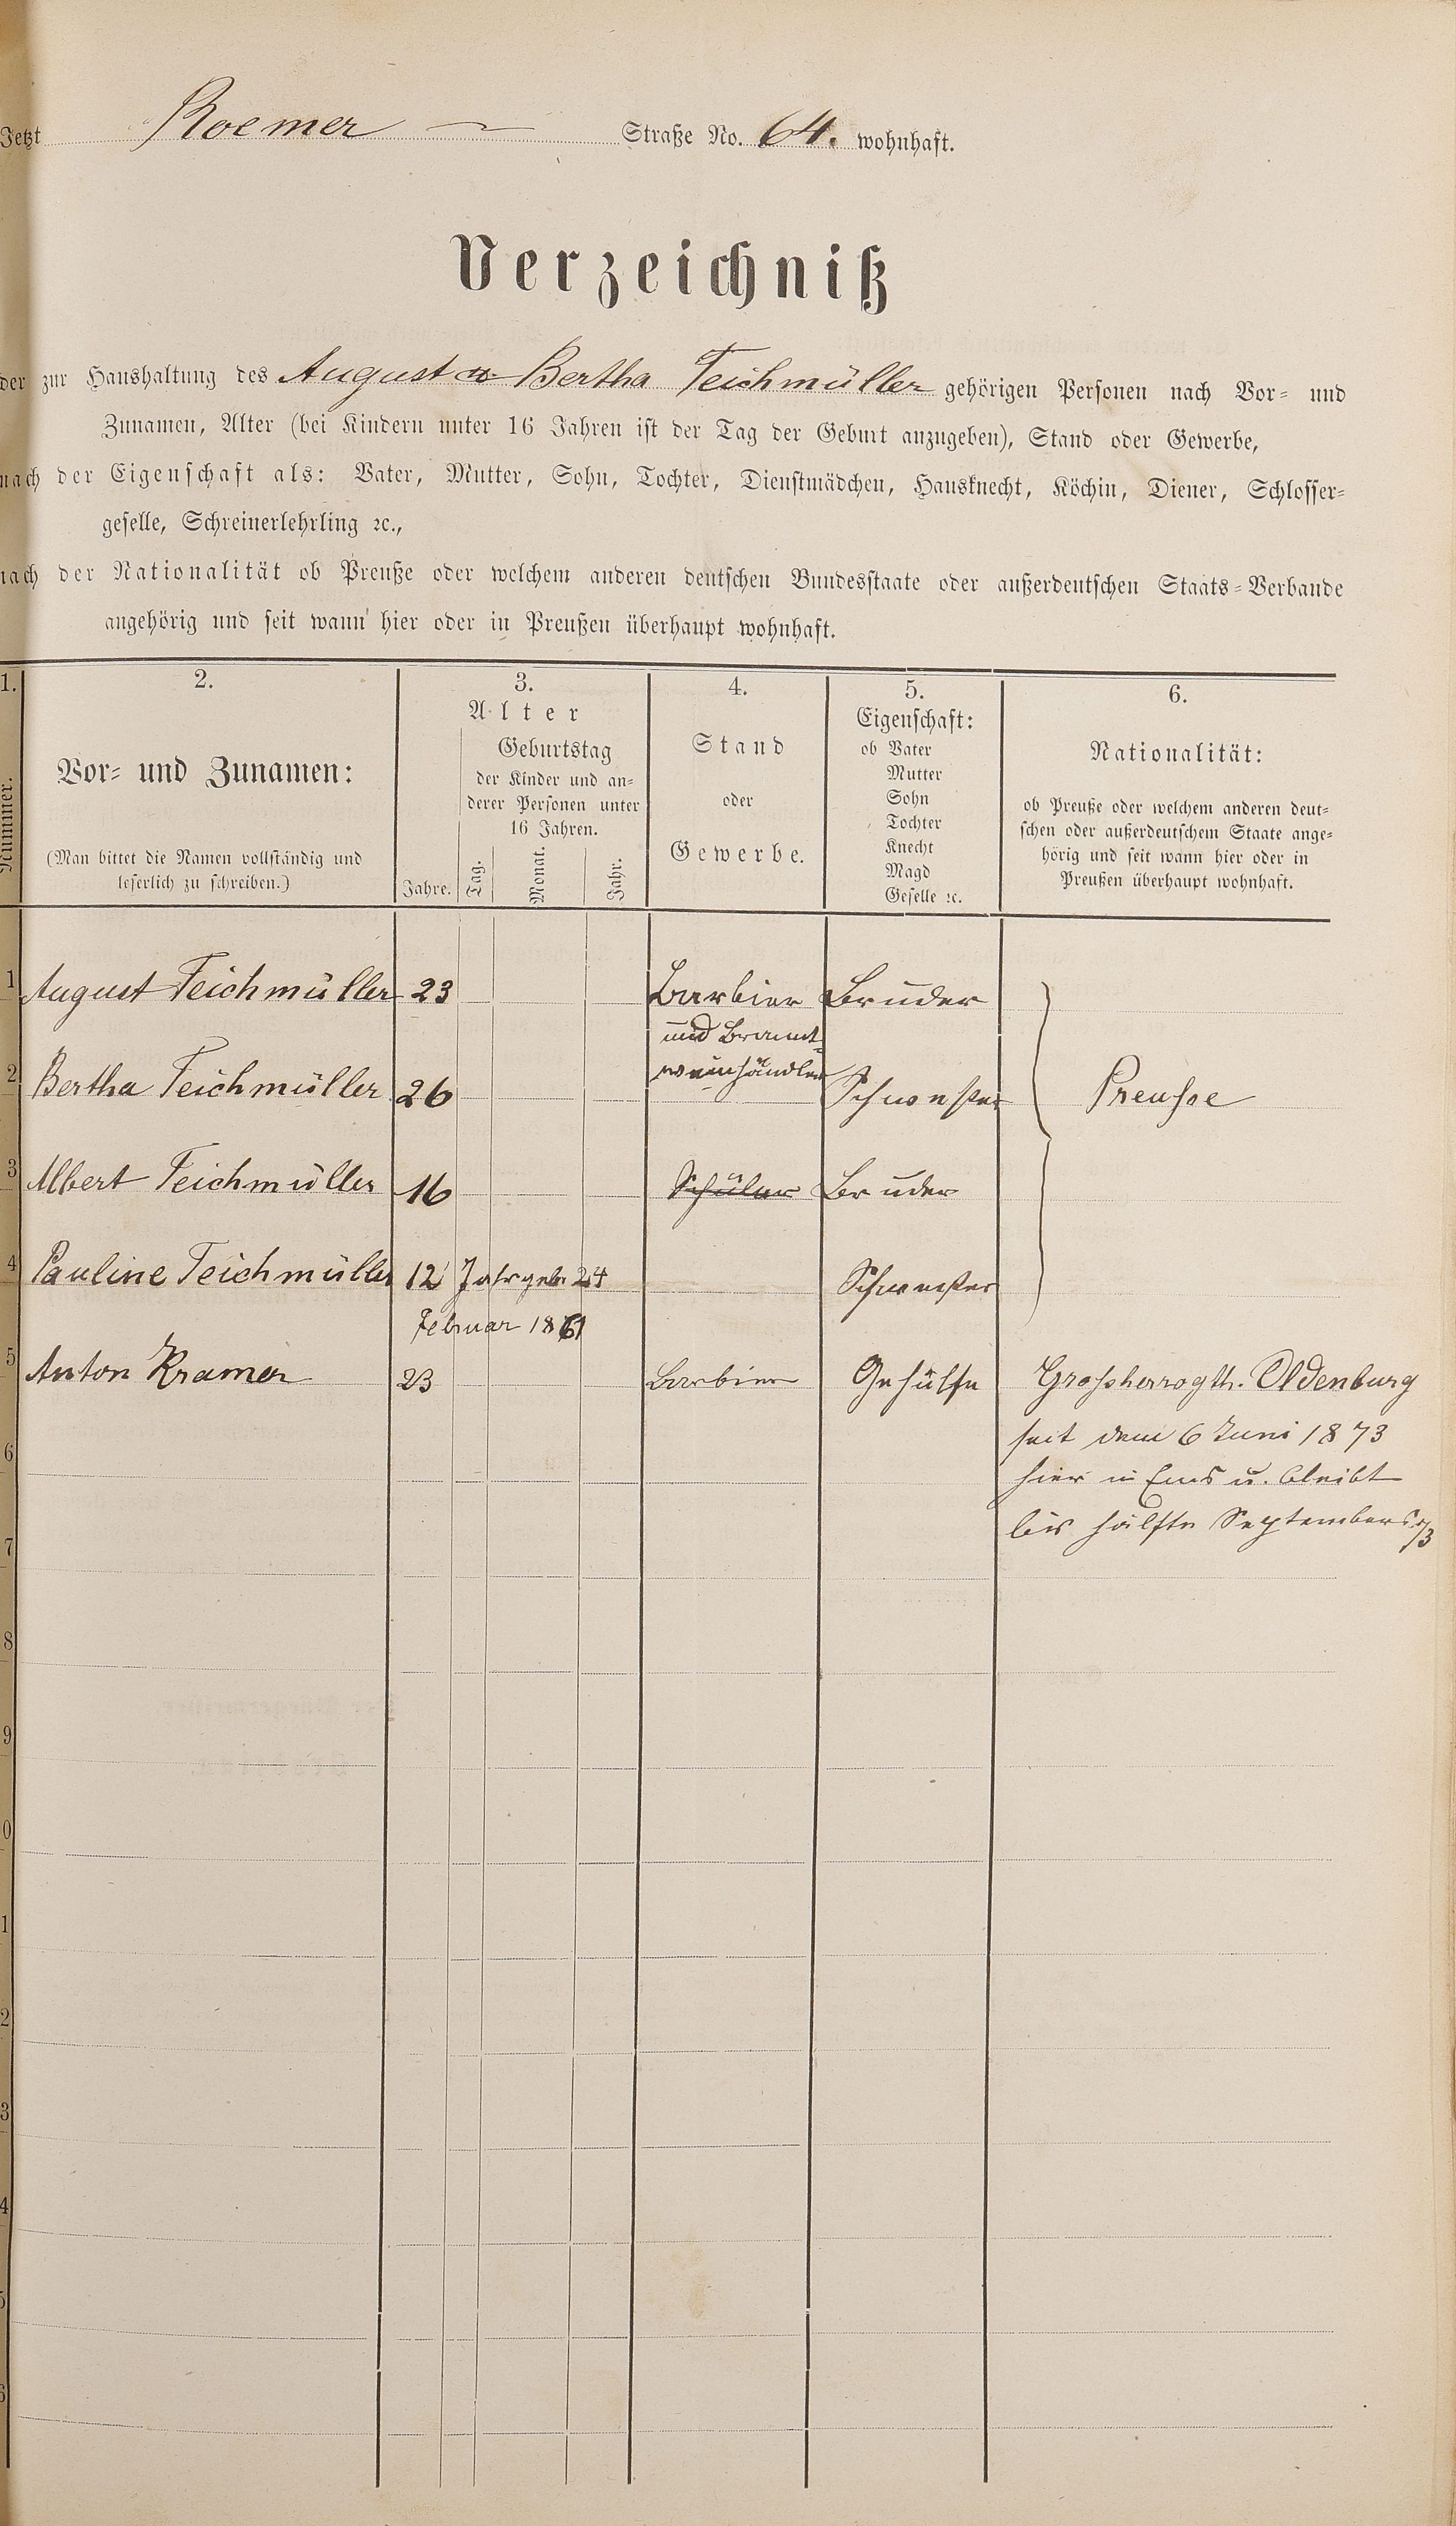 Jetzt Roemer — Straße No. 64. wohnhaft.
Verzeichniß
der zur Haushaltung des August & Bertha Teichmüller gehörigen Personen nach Vor- und
Zunamen, Alter (bei Kindern unter 16 Jahren ist der Tag der Geburt anzugeben), Stand oder Gewerbe,
nach der Eigenschaft als: Vater, Mutter, Sohn, Tochter, Dienstmädchen, Hausknecht, Köchin, Diener, Schlosser-
geselle, Schreinerlehrling ꝛc.,
nach der Nationalität ob Preuße oder welchem anderen deutschen Bundesstaate oder außerdeutschen Staats-Verbande
angehörig und seit wann hier oder in Preußen überhaupt wohnhaft.
1.
Nummer.
2.
Vor- und Zunamen:
(Man bittet die Namen vollständig und
leserlich zu schreiben.)
3.
Alter
Geburtstag
der Kinder und an-
derer Personen unter
16 Jahren.
Jahre. Tag. Monat. Jahr.
4.
Stand
oder
Gewerbe.
5.
Eigenschaft:
ob Vater
Mutter
Sohn
Tochter
Knecht
Magd
Geselle ꝛc.
6.
Nationalität:
ob Preuße oder welchem anderen deut-
schen oder außerdeutschem Staate ange-
hörig und seit wann hier oder in
Preußen überhaupt wohnhaft.
1 August Teichmüller 23 Barbier Bruder
und Brannt-
weinhändler
2 Bertha Teichmüller 26 Schwester Preuße
3 Albert Teichmüller 16 Schüler Bruder
4 Pauline Teichmüller 12 Jahr geb. 24 Schwester
Februar 1861
5 Anton Kramer 23 Barbier Gehülfe Großherzogth. Oldenburg
6 seit dem 6 Juni 1873
hier in Ems u. bleibt
7 bis hälfte September 73
8
9
0
1
2
3
4
5
6